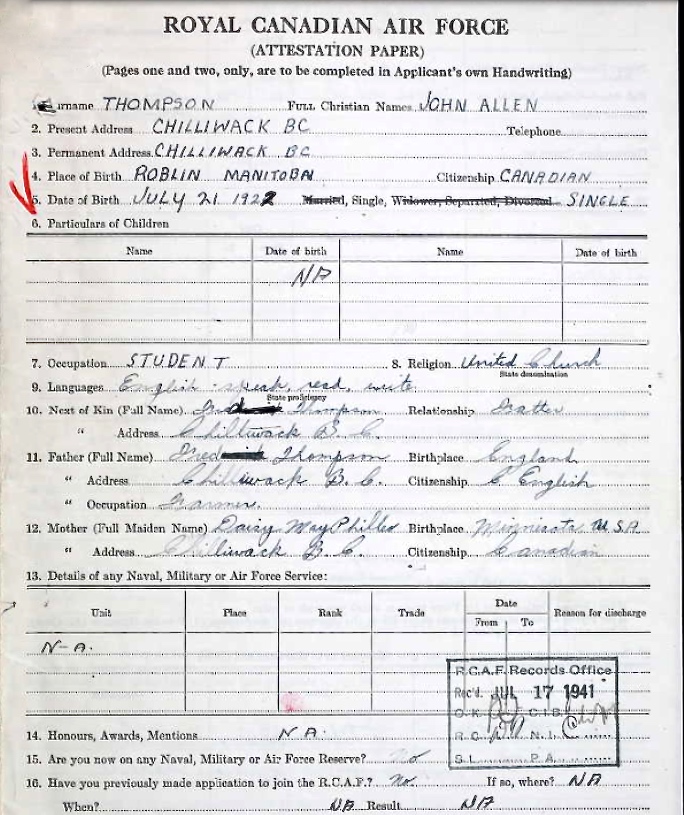 ROYAL CANADIAN AIR FORCE
(ATTESTATION PAPER)
(Pages one and two, only, are to be completed in Applicant's own Handwriting)
urname THOMPSON FULL Christian Names JOHN ALLEN
2. Present Address CHILLIWACK BC Telephone
3. Permanent Address CHILLIWACK BC
4. Place of Birth ROBLIN MANITOBA Citizenship CANADIAN
5. Date of Birth JULY 21 1922 Married, Single, Widower, Separated, Divorced SINGLE
6. Particulars of Children
Name Date of birth Name Date of birth
NA
7. Occupation STUDENT 8. Religion United Church
State denomination
9. Languages English - speak, read, write
State proficiency
10. Next of Kin (Full Name) Fred Thompson Relationship Father
" Address Chilliwack B.C.
11. Father (Full Name) Fred Thompson Birthplace England
" Address Chilliwack B.C. Citizenship English
" Occupation Farmer.
12. Mother (Full Maiden Name) Daisy May Birthplace Minniesota U.S.A
" Address Chilliwack B.C. Citizenship Canadian
13. Details of any Naval, Military or Air Force Service:
Unit Place Rank Trade Date Reason for discharge
From To
N-A.
R.C.A.F. Records Office
Rec'd. JUL 17 1941
O.K. C.I.B.
R.C. N.I.
S.L. P.A.
14. Honours, Awards, Mentions NA.
15. Are you now on any Naval, Military or Air Force Reserve? no
16. Have you previously made application to join the R.C.A.F.? no. If so, where? NA
When? NA Result NA